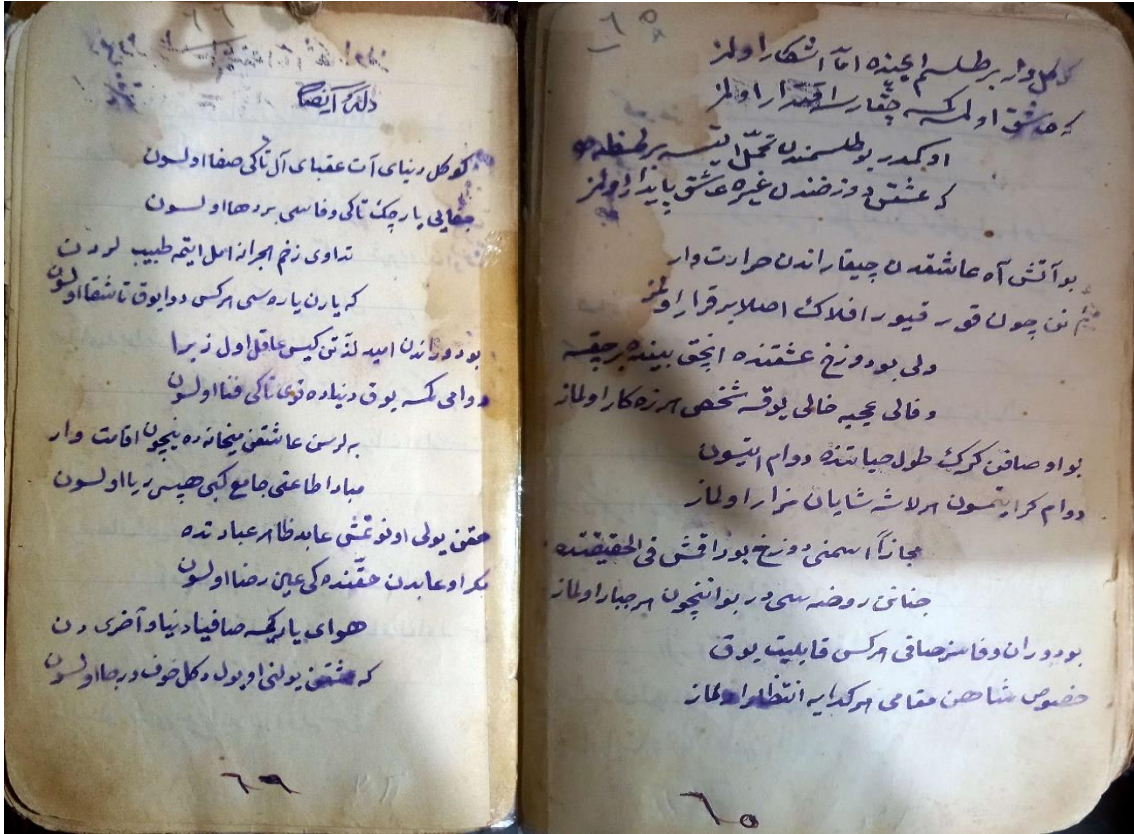 ٦٥
كوكل وار بر طلسم ايچنده اما آشكار اولمز
كه عاشق اولمه كسه چقارسه اقتدار اولمز
او كمدر بو طلسمندن تحمل ايتسه بر لحظه
كه عشق دوزخندن غيره عاشق پايدار اولمز
بو آتش آه عاشقدن چيقار اندن حرارت وار
نن چون قور قيور افلاك اصلا برقرار اولمز
ولى بو دوزخ عشقنده انجق بينده بر چقسه
وفالى عجبه خالى يوقسه شخصى هرزه كار اولماز
بو اوصافن كرك طول حياتنده دوام ايتسون
دوام كر ايتمسون هر لاشه شايان مزار اولماز
مجازاً اسمنى دوزخ بوراقمش فى الحقيقتنده
جنانن روضه سى در بو انيچون هر جبار اولماز
بو دوران وفاسز صافى هر كس قابليت يوق
خصوص شاهن مقامى هر كدايه انتظار اولماز
٦٥
٦٦
وله ايضاً
كوكل دنياى آت عقباى آل تا كى صفا اولسون
جفايى يار چك تا كى وفاسى بر دها اولسون
تداوى زخم اجراز امل ايتمه طبيب لردن
كه يارن ياره سى هر كس دوا يوق تا شفا اولسون
بو دوراندن اميد لذتن كيس عاقل اول زيرا
دوامى كمسه يوق دنياده قوى تا كى فنا اولسون
بلرسن عاشقن ميخانه ده نيچون اقامت وار
مبادا طاعتى جامع كبى هپسى ريا اولسون
حقن يولى اونوتمشى عابد ظاهر عبادتده
مكر او عابدن حقنده كى عين رضا اولسون
هواى يار كچسه صافيا دنيا و آخرى دن
كه عشقن يولنى او يول دكل خوف و رجا اولسون
٦٩